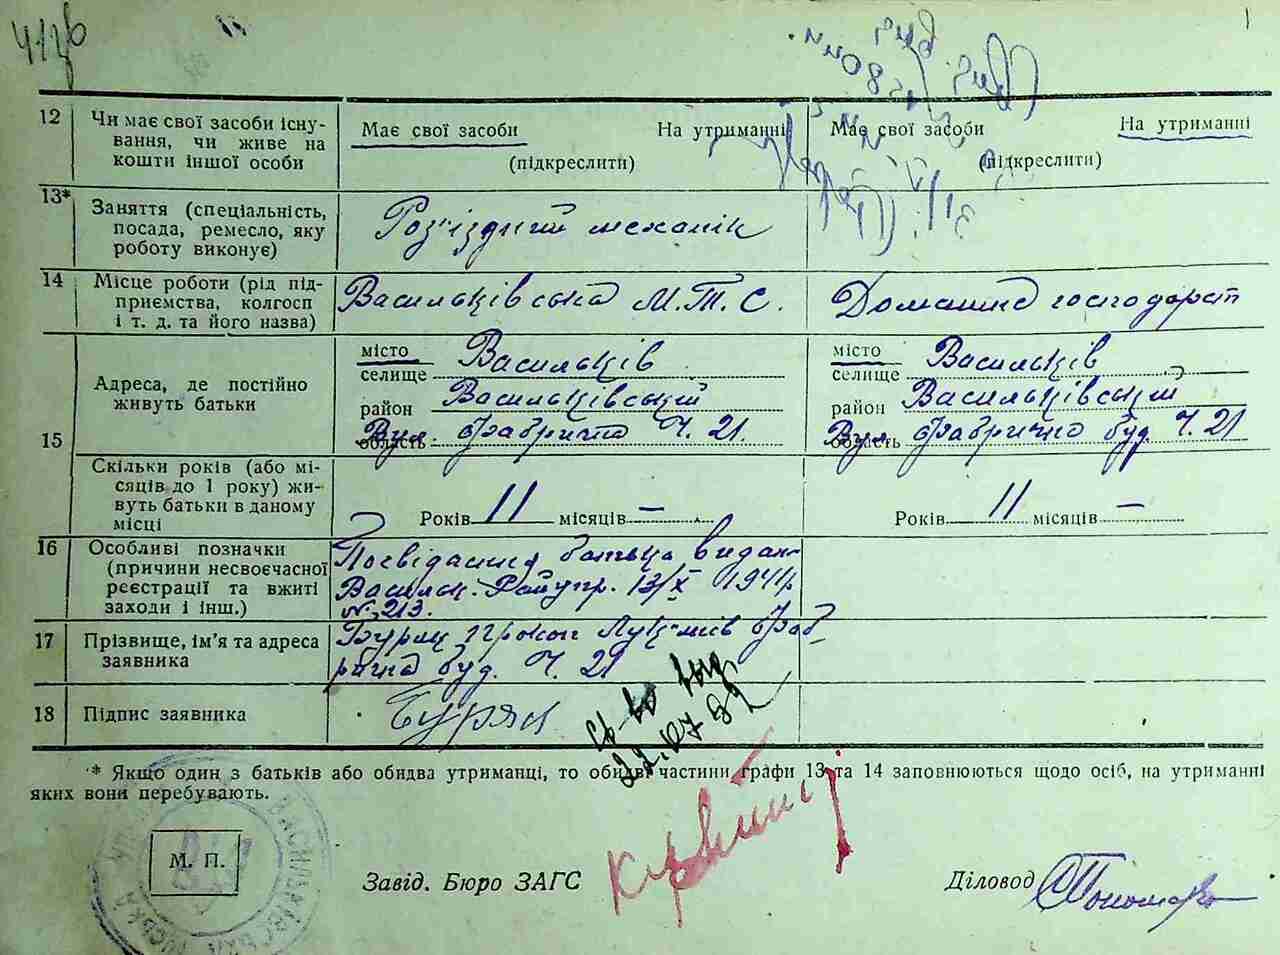 12 Чи має свої засоби існу-
вання, чи живе на
кошти іншої особи
Має свої засоби На утриманні
(підкреслити)
Має свої засоби На утриманні
(підкреслити)
13* Заняття (спеціальність,
посада, ремесло, яку
роботу виконує)
Роз'їздний механік
14 Місце роботи (рід під-
приємства, колгосп
і т. д. та його назва)
Васильківська М.Т.С.
Домашнє господарст
15 Адреса, де постійно
живуть батьки
місто Васильків
селище
район Васильківський
область Вул. Фабрична Ч. 21.
місто Васильків
селище
район Васильківський
область Вул. Фабрична буд. Ч. 21
Скільки років (або мі-
сяців до 1 року) жи-
вуть батьки в даному
місці
Років 11 місяців —
Років 11 місяців —
16 Особливі позначки
(причини несвоєчасної
реєстрації та вжиті
заходи і інш.)
Посвідання батька видан
Васильк. Райупр. 13/X 1941р
№ 213.
17 Прізвище, ім'я та адреса
заявника
Буряк Лук'янів Фаб-
рична буд. Ч. 21
18 Підпис заявника
Буряк
22.07.82
* Якщо один з батьків або обидва утриманці, то обидві частини графи 13 та 14 заповнюються щодо осіб, на утриманні
яких вони перебувають.
М. П.
Завід. Бюро ЗАГС
Діловод